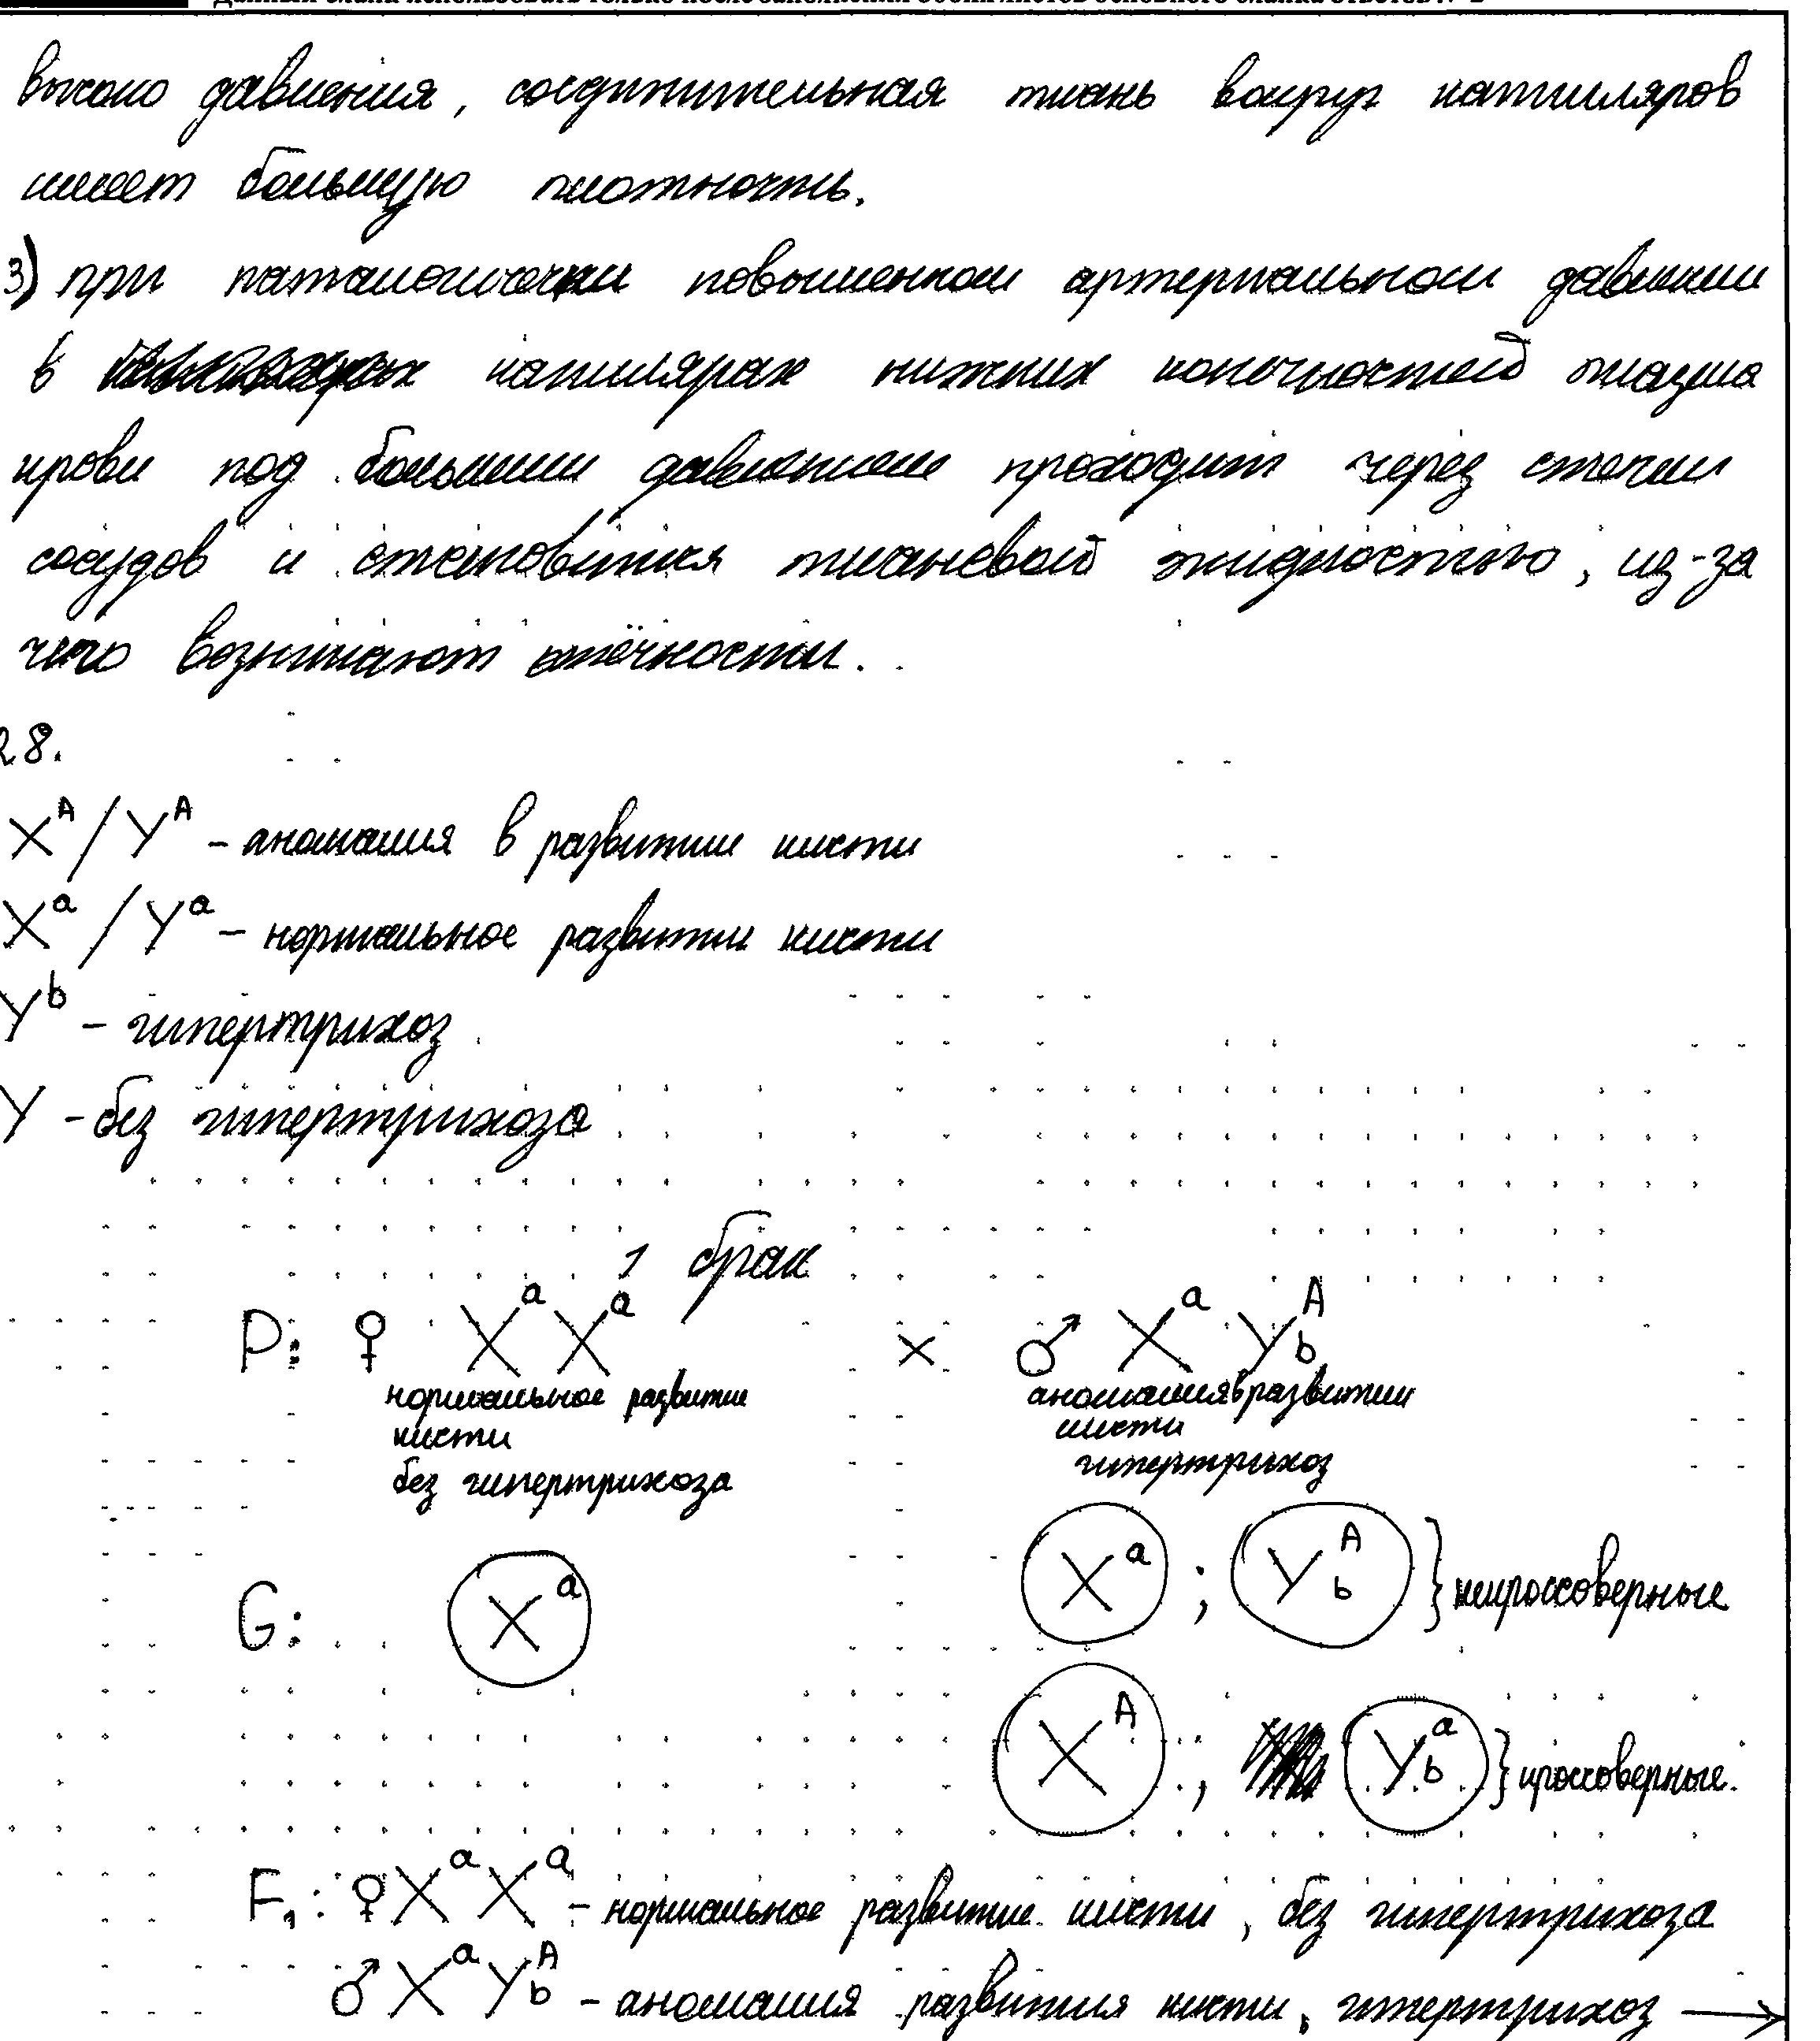 высоко давления, соединительная ткань вокруг капилляров
имеет большую плотность.
3) при патологически повышенном артериальном давлении
в капилярах нижних конечностей плазма
крови под большим давлением проходит через стенки
сосудов и становится тканевой жидкостью, из-за
чего возникают отёчности.
28.
X^A / Y^A - аномалия в развитии кисти
X^a / Y^a - нормальное развитии кисти
Y^b - гипертрихоз
Y - без гипертрихоза
1 брак
P: ♀ X^a X^a × ♂ X^a Y^A_b
нормальное развитие аномалия в развитии
кисти кисти
без гипертрихоза гипертрихоз
G: X^a X^a ; Y^A_b } некроссоверные
X^A ; Y^a_b } кроссоверные.
F₁: ♀ X^a X^a - нормальное развитие кисти, без гипертрихоза
♂ X^a Y^A_b - аномалия развития кисти, гипертрихоз →